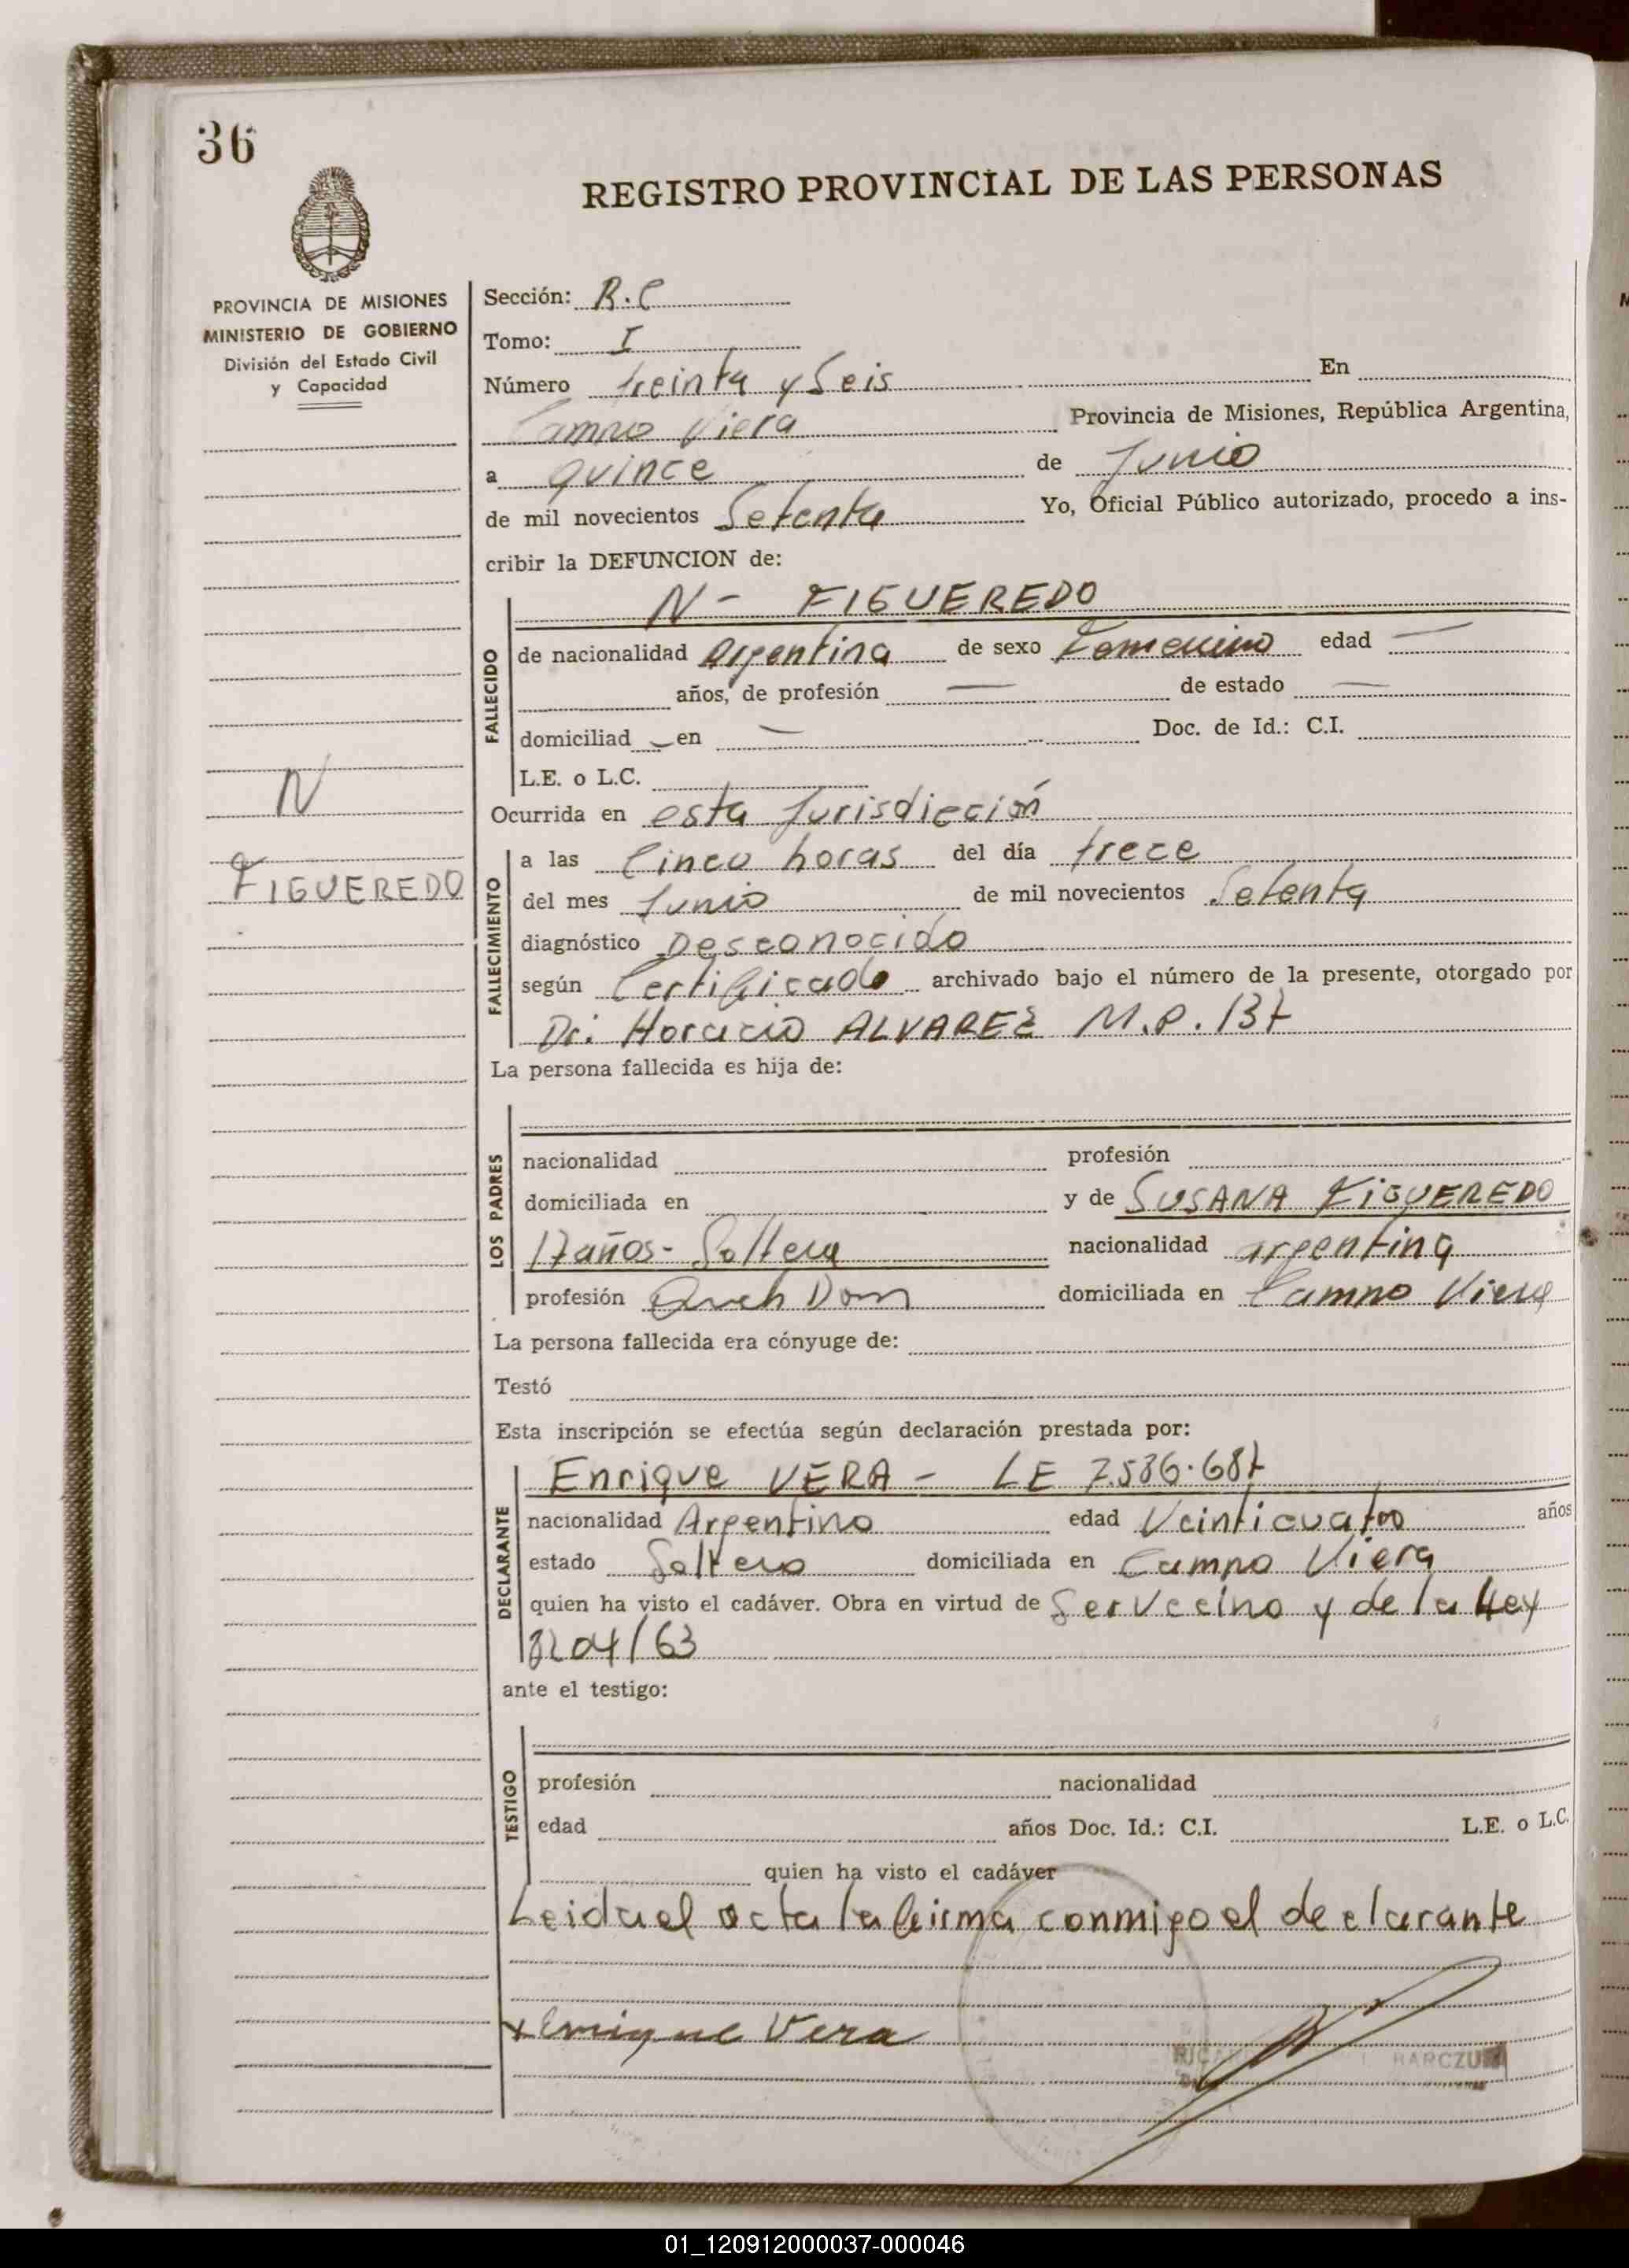 36
REGISTRO PROVINCIAL DE LAS PERSONAS
PROVINCIA DE MISIONES
MINISTERIO DE GOBIERNO
División del Estado Civil
y Capacidad
Sección: R.C
Tomo: I
Número treinta y Seis En
Campo Viera Provincia de Misiones, República Argentina,
a quince de Junio
de mil novecientos Setenta Yo, Oficial Público autorizado, procedo a ins-
cribir la DEFUNCION de:
FALLECIDO
N - FIGUEREDO
de nacionalidad Argentina de sexo Femenino edad —
años, de profesión — de estado —
domiciliad — en — Doc. de Id.: C.I.
L.E. o L.C.
N
FIGUEREDO
Ocurrida en esta Jurisdicción
FALLECIMIENTO
a las Cinco horas del día trece
del mes Junio de mil novecientos Setenta
diagnóstico Desconocido
según Certificado archivado bajo el número de la presente, otorgado por
Dr. Horacio ALVAREZ M.P. 137
La persona fallecida es hija de:
LOS PADRES
nacionalidad profesión
domiciliada en y de SUSANA FIGUEREDO
17 años - Soltera nacionalidad argentina
profesión Dom domiciliada en Campo Viera
La persona fallecida era cónyuge de:
Testó
Esta inscripción se efectúa según declaración prestada por:
DECLARANTE
Enrique VERA - LE 7.536.687
nacionalidad Argentino edad Veinticuatro años
estado Soltero domiciliada en Campo Viera
quien ha visto el cadáver. Obra en virtud de Ser Vecino y de la Ley
8204/63
ante el testigo:
TESTIGO
profesión nacionalidad
edad años Doc. Id.: C.I. L.E. o L.C.
quien ha visto el cadáver
Leida el acta la firma conmigo el declarante
x Enrique Vera
01_120912000037-000046